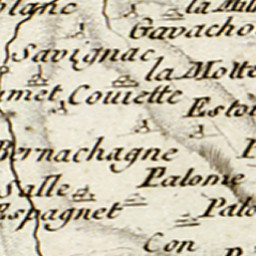 blanc
la Mill
Gavacho
Savignac
la Motte
met Couiette
Estou
Bernachagne
Palome
salle
Espagnet
Palo
Con